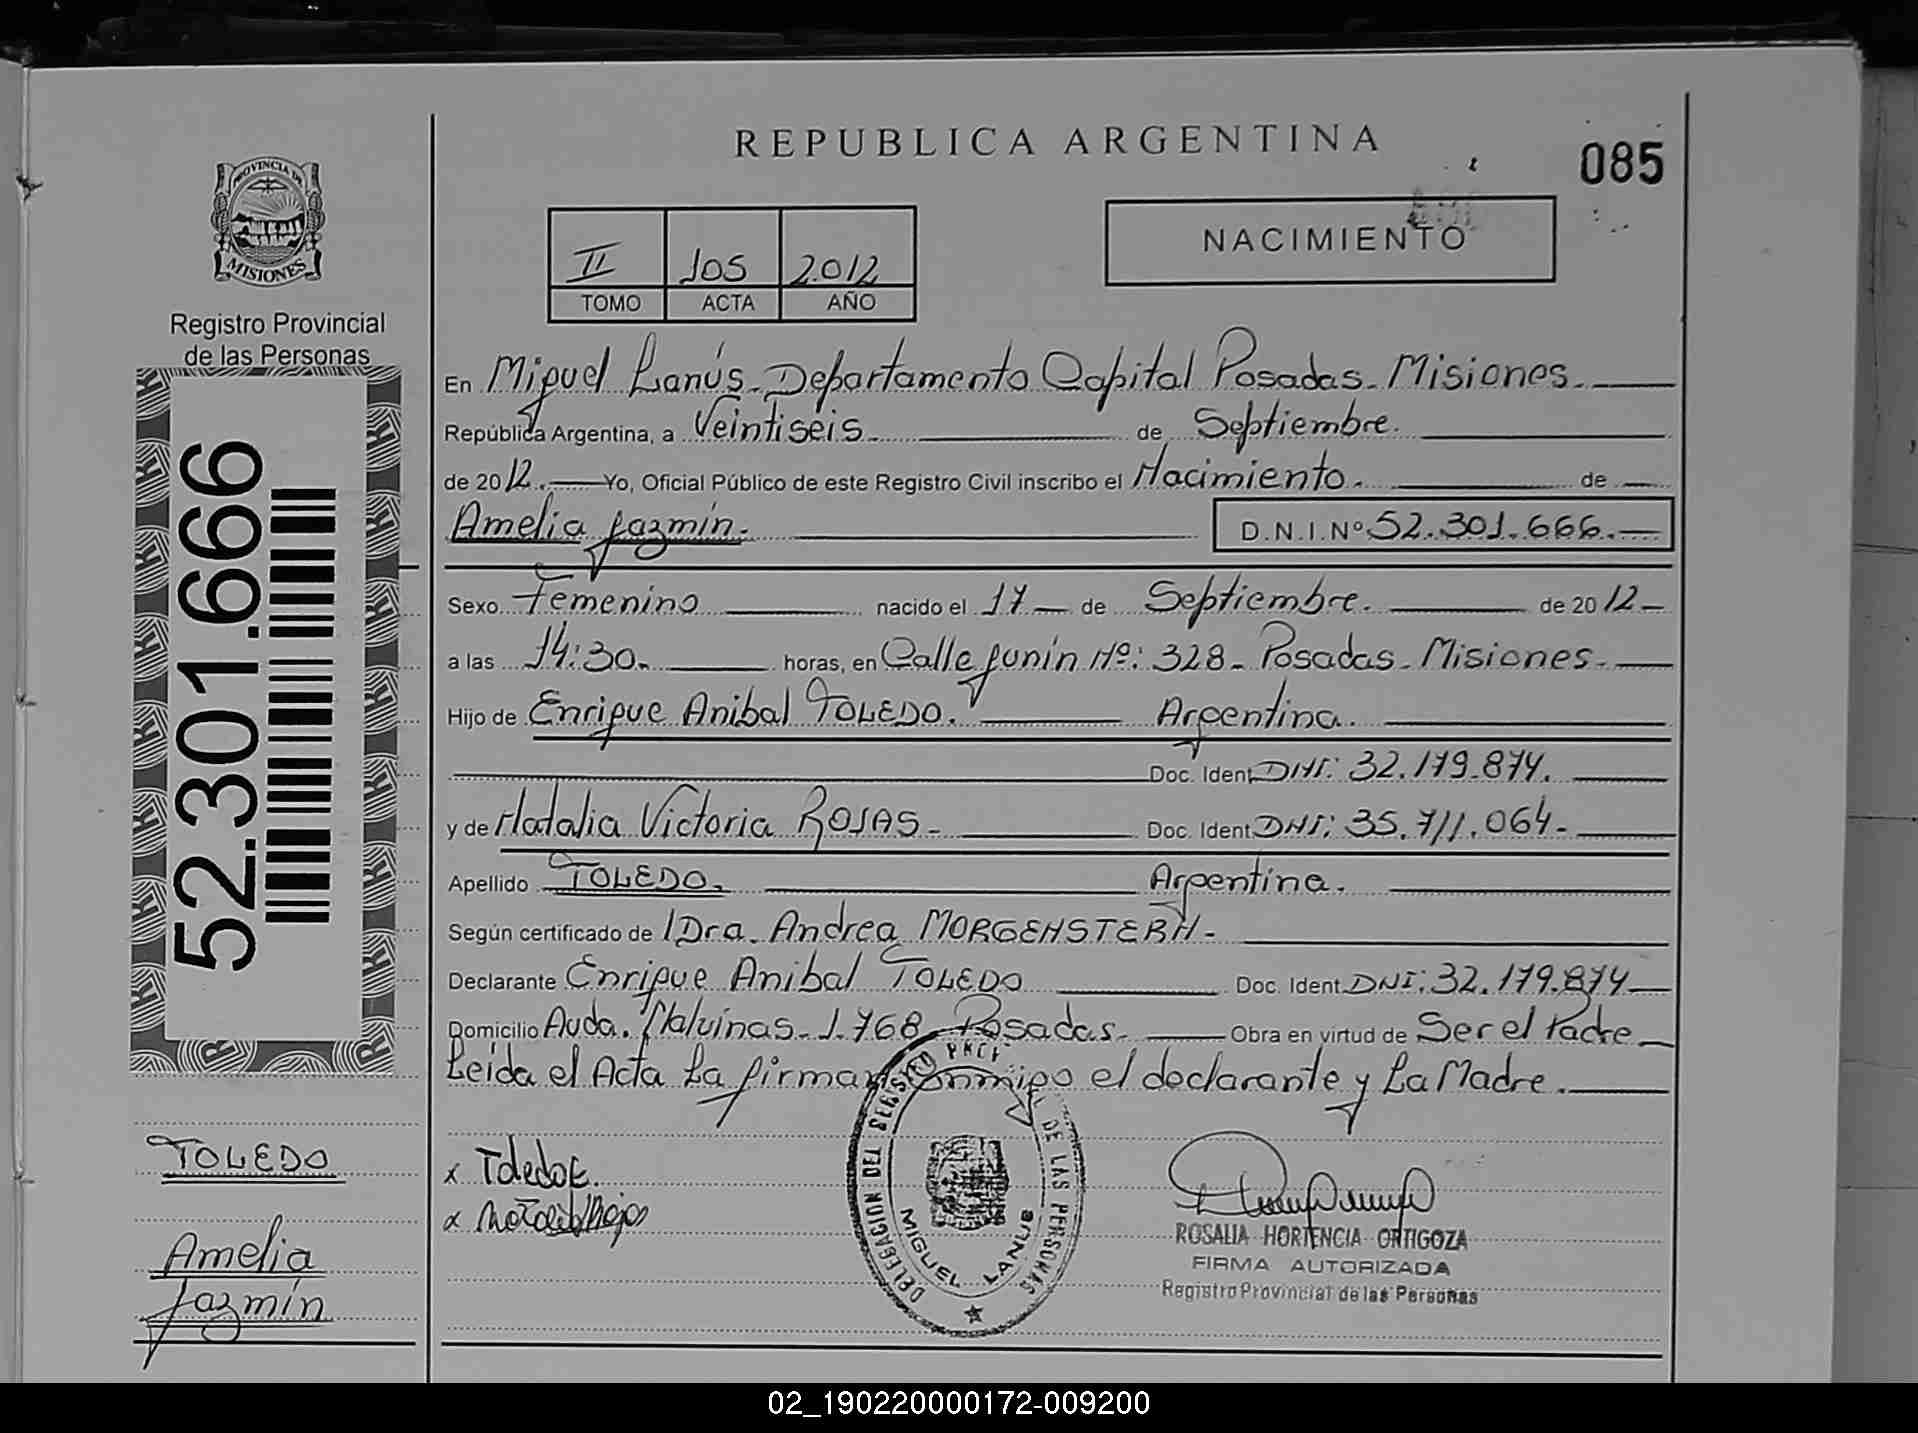 REPUBLICA ARGENTINA
085
PROVINCIA DE
MISIONES
Registro Provincial
de las Personas
52.301.666
II 105 2.012
TOMO ACTA AÑO
NACIMIENTO
En Miguel Lanús. Departamento Capital Posadas. Misiones.
República Argentina, a Veintiseis. de Septiembre.
de 2012. Yo, Oficial Público de este Registro Civil inscribo el Nacimiento. de
Amelia Jazmín. D.N.I.Nº 52.301.666.
Sexo Femenino nacido el 17 de Septiembre. de 2012
a las 14:30. horas, en Calle Junín Nº: 328. Posadas. Misiones.
Hijo de Enrique Anibal TOLEDO. Argentina.
Doc. Ident DNI: 32.179.874.
y de Natalia Victoria ROJAS. Doc. Ident DNI: 35.711.064.
Apellido TOLEDO. Argentina.
Según certificado de Dra. Andrea MORGENSTERN.
Declarante Enrique Anibal TOLEDO Doc. Ident DNI: 32.179.874
Domicilio Avda. Malvinas. 1.768 Posadas. Obra en virtud de Ser el Padre
Leída el Acta La firman conmigo el declarante y La Madre.
TOLEDO
Amelia
Jazmín
x Toledo E.
x Natalia Rojas
DELEGACION DEL REGISTRO PROV. DE LAS PERSONAS
MIGUEL LANUS
ROSALIA HORTENCIA ORTIGOZA
FIRMA AUTORIZADA
Registro Provincial de las Personas
02_190220000172-009200